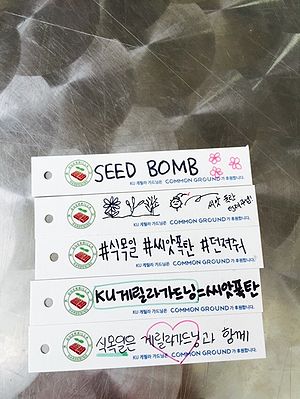 SEED BOMB
KU 게릴라 가드닝은 COMMON GROUND가 후원합니다.
씨앗 폭탄
KU 게릴라 가드닝은 COMMON GROUND가 후원합니다.
#식목일 #씨앗폭탄 #던져줘
KU 게릴라 가드닝은 COMMON GROUND가 후원합니다.
KU게릴라가드닝=씨앗폭탄
KU 게릴라 가드닝은 COMMON GROUND가 후원합니다.
식목일은 게릴라가드닝과 함께
KU 게릴라 가드닝은 COMMON GROUND가 후원합니다.